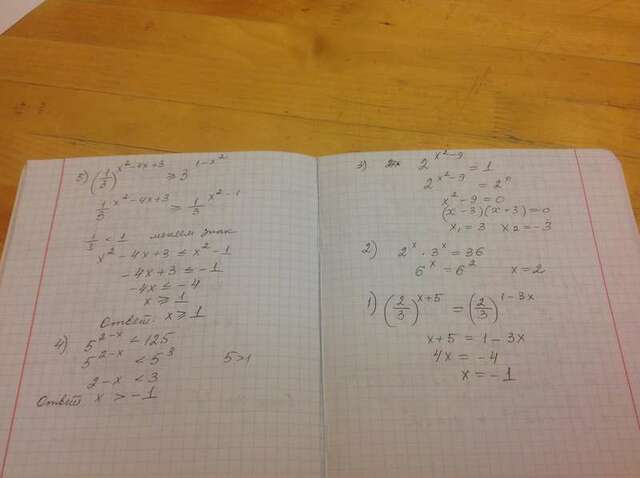 5) (1/3)^(x²-4x+3) ≥ 3^(1-x²)
1/3^(x²-4x+3) ≥ 1/3^(x²-1)
1/3 < 1 меняем знак
x² - 4x + 3 ≤ x² - 1
-4x + 3 ≤ -1
-4x ≤ -4
x ≥ 1
Ответ: x ≥ 1
4) 5^(2-x) < 125
5^(2-x) < 5³ 5 > 1
2 - x < 3
Ответ x > -1
3) 2^(x²-9) = 1
2^(x²-9) = 2⁰
x² - 9 = 0
(x-3)(x+3) = 0
x₁ = 3 x₂ = -3
2) 2^x · 3^x = 36
6^x = 6² x = 2
1) (2/3)^(x+5) = (2/3)^(1-3x)
x + 5 = 1 - 3x
4x = -4
x = -1